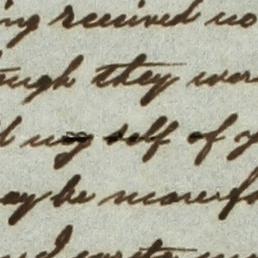 ing received no
ough they were
d my self of y
ay be more fo
and